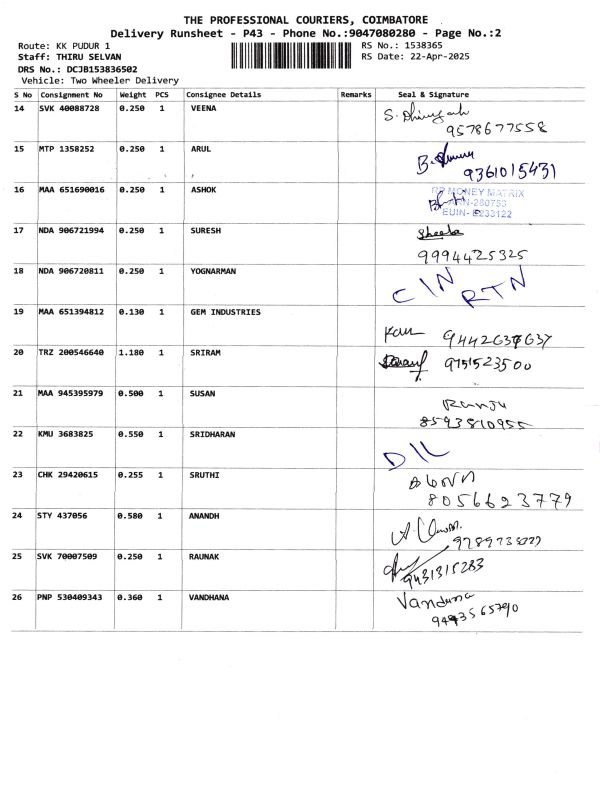 THE PROFESSIONAL COURIERS, COIMBATORE
Delivery Runsheet - P43 - Phone No.:9047080280 - Page No.:2
Route: KK PUDUR 1 RS No.: 1538365
Staff: THIRU SELVAN RS Date: 22-Apr-2025
DRS No.: DCJB153836502
Vehicle: Two Wheeler Delivery
S No Consignment No Weight PCS Consignee Details Remarks Seal & Signature
14 SVK 40088728 0.250 1 VEENA
9578677558
15 MTP 1358252 0.250 1 ARUL
9361015431
16 MAA 651690016 0.250 1 ASHOK
MONEY MATRIX
ARN-280753
EUIN- E233122
17 NDA 906721994 0.250 1 SURESH Sheeba
9994425325
18 NDA 906720811 0.250 1 YOGNARMAN CIN RTN
19 MAA 651394812 0.130 1 GEM INDUSTRIES
20 TRZ 200546640 1.180 1 SRIRAM 9751523500
21 MAA 945395979 0.500 1 SUSAN Ranju
8593810955
22 KMU 3683825 0.550 1 SRIDHARAN D/L
23 CHK 29420615 0.255 1 SRUTHI
8056623779
24 STY 437056 0.580 1 ANANDH
25 SVK 70007509 0.250 1 RAUNAK
9431315283
26 PNP 530409343 0.360 1 VANDHANA Vandhana